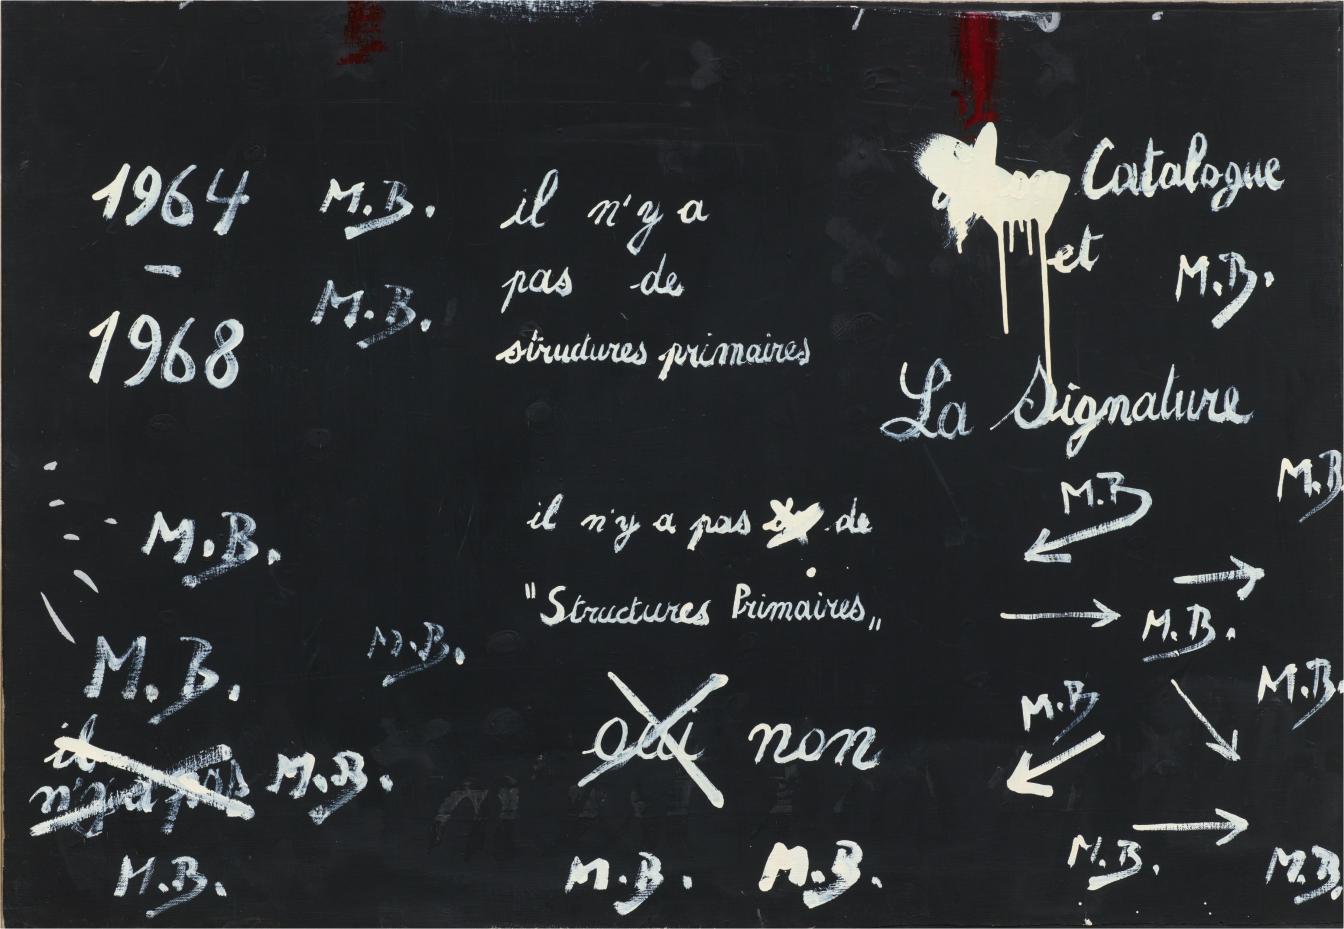 1964
-
1968
M.B.
M.B.
il n'y a
pas de
structures primaires
Catalogue
et
M.B.
La Signature
M.B.
M.B.
il
n'y a pas
M.B.
M.B.
M.B.
il n'y a pas de
"Structures Primaires"
oui non
M.B.
M.B.
M.B
M.B
M.B.
M.B
M.B.
M.B.
M.B.